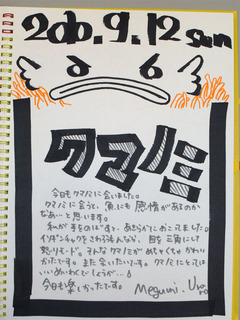 200.9.12 sun
クマノミ
今日もクマノミに会いました。
クマノミに会うと、魚にも感情があるのか
なあ…と思います。
私が手をのばすと、あきらかにおこってました。
イソギンチャクをさわろもんなら、目を三角にして
怒りモード。そんなクマノミがめちゃくちゃかわい
かったです。また会いたいです。クマノミにとっては
いいめいわくでしょうが…
今日も楽しかったです。
Megumi.